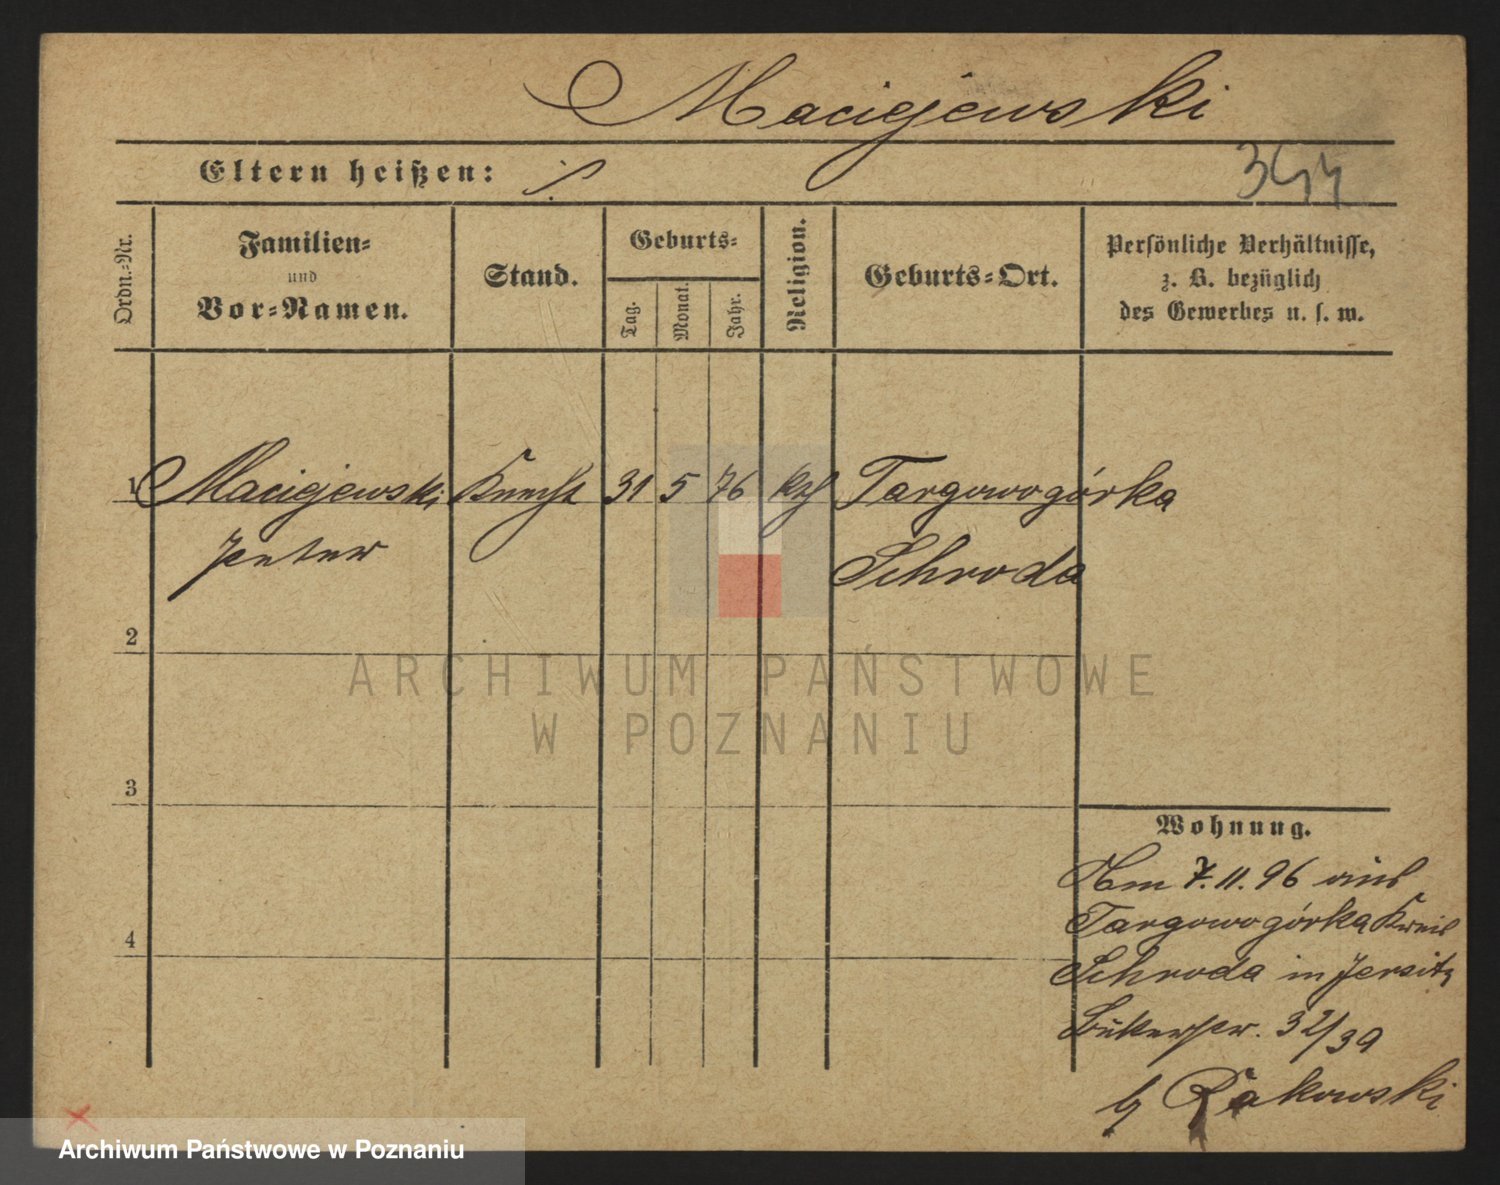 Maciejewski
Eltern heißen: ·/·
344
Ordn.-Nr.
Familien-
und
Vor-Namen.
Stand.
Geburts-
Tag.
Monat.
Jahr.
Religion.
Geburts-Ort.
Persönliche Verhältnisse,
z. B. bezüglich
des Gewerbes u. s. w.
1 Maciejewski Knecht 31 5 76 kth Targowogórka
Peter Schroda
2
3
4
Wohnung.
Am 7. 11. 96 aus
Targowogórka Kreis
Schroda in Jersitz
Bukerstr. 32/39
b Rakowski
ARCHIWUM PAŃSTWOWE
W POZNANIU
Archiwum Państwowe w Poznaniu